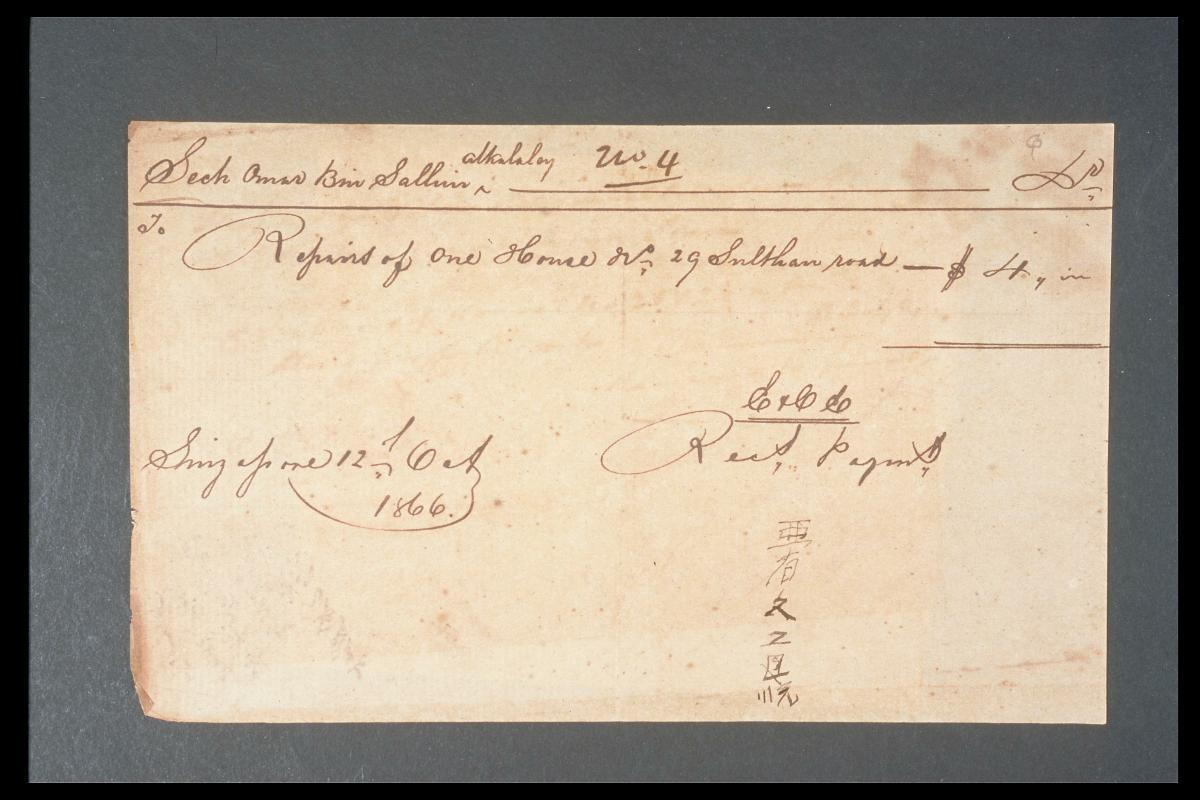 Sech Omar Bin Sallim alkalaley No. 4 Dr
To
Repairs of One House No. 29 Sulthan road — $ 4,, in
E & O E
Singapore 12th Oct
Rect. Paymt.
1866.